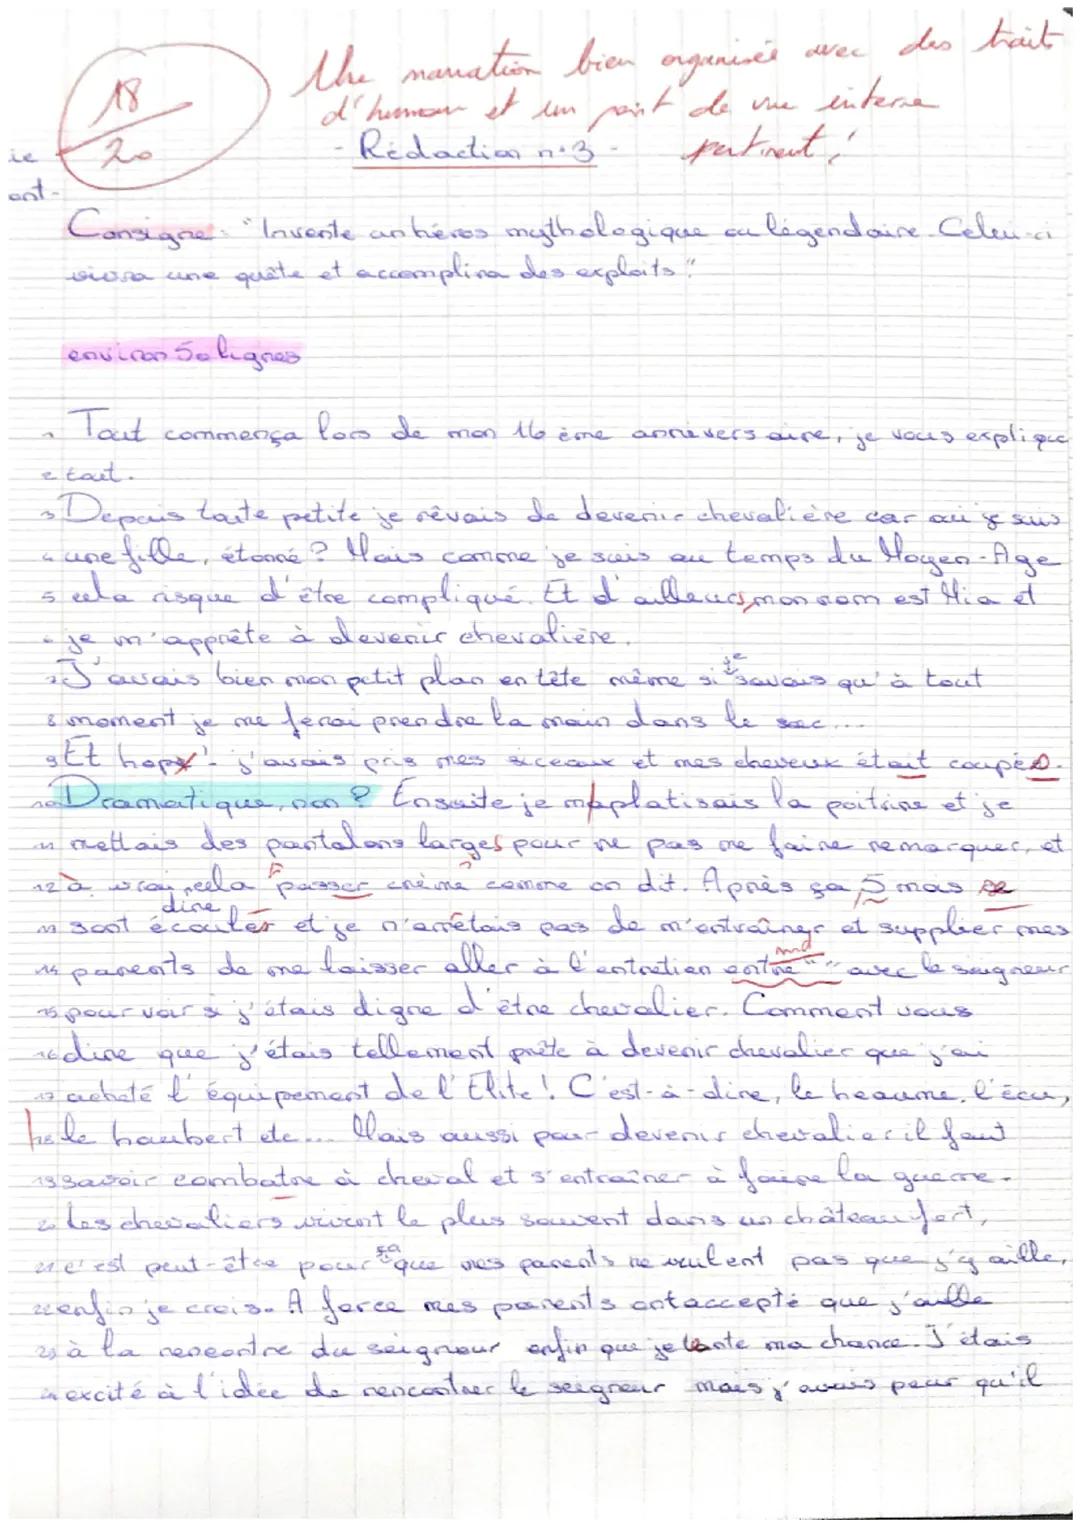 18
20
Une narration bien organisée avec des trait
d'humour et un point de vue interne
pertinent !
- Rédaction n°3 -
ie
ont-
Consigne : "Invente un héros mythologique ou légendaire. Celui-ci
vivra une quête et accomplira des exploits."
environ 50 lignes
1 Tout commença lors de mon 16 ème anniversaire, je vous explique
2 tout.
3 Depuis toute petite je rêvais de devenir chevalière car oui je suis
4 une fille, étonné ? Mais comme je suis au temps du Moyen-Age
5 cela risque d'être compliqué. Et d'ailleurs, mon nom est Mia et
6 je m'apprête à devenir chevalière.
7 J'avais bien mon petit plan en tête même si je savais qu'à tout
8 moment je me ferai prendre la main dans le sac...
9 Et hop ! j'avais pris mes siceaux et mes cheveux était coupés.
10 Dramatique, non ? Ensuite je m'aplatisais la poitrine et je
11 mettais des pantalons larges pour ne pas me faire remarquer, et
12 à vrai dire, cela passer crème comme on dit. Après ça, 5 mois se
13 sont écoulés et je n'arrêtais pas de m'entraîner et supplier mes
14 parents de me laisser aller à l'entretien entre "" avec le seigneur
md
15 pour voir si j'étais digne d'être chevalier. Comment vous
16 dire que j'étais tellement prête à devenir chevalier que j'ai
17 acheté l'équipement de l'Elite ! C'est-à-dire, le heaume, l'écu,
18 le haubert etc... Mais aussi pour devenir chevalier il faut
19 savoir combatre à cheval et s'entraîner à faire la guerre.
20 Les chevaliers vivent le plus souvent dans un château fort,
21 c'est peut-être pour ça que mes parents ne veulent pas que j'y aille,
22 enfin je crois. A force mes parents ont accepté que j'aille
23 à la rencontre du seigneur enfin que je tente ma chance. J'étais
24 excité à l'idée de rencontrer le seigneur mais j'avais peur qu'il